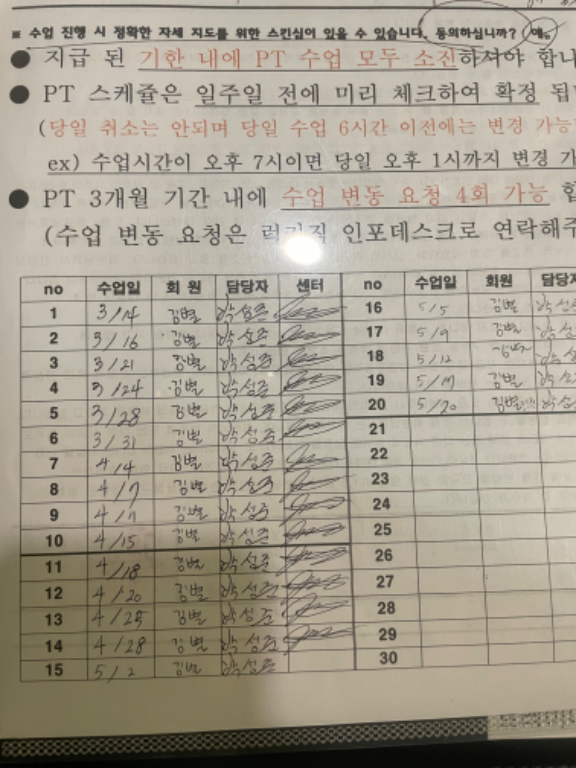 ※ 수업 진행 시 정확한 자세 지도를 위한 스킨십이 있을 수 있습니다. 동의하십니까? 예.
● 지급 된 기한 내에 PT 수업 모두 소진하셔야 합니
● PT 스케쥴은 일주일 전에 미리 체크하여 확정 됩
(당일 취소는 안되며 당일 수업 6시간 이전에는 변경 가능
ex) 수업시간이 오후 7시이면 당일 오후 1시까지 변경 가
● PT 3개월 기간 내에 수업 변동 요청 4회 가능 합
(수업 변동 요청은 인포데스크로 연락해주
no 수업일 회 원 담당자 센터 no 수업일 회원 담당자
1 3/14 김별 박성준 16 5/5 김별 박성준
2 3/16 김별 박성준 17 5/9 김별 박성
3 3/21 김별 박성준 18 5/12 김별 박성
4 3/24 김별 박성준 19 5/17 김별 박성
5 3/28 김별 박성준 20 5/20 김별 박성
6 3/31 김별 박성준 21
7 4/4 김별 박성준 22
8 4/7 김별 박성준 23
9 4/11 김별 박성준 24
10 4/15 김별 박성준 25
11 4/18 김별 박성준 26
12 4/20 김별 박성준 27
13 4/25 김별 박성준 28
14 4/28 김별 박성준 29
15 5/2 김별 박성준 30